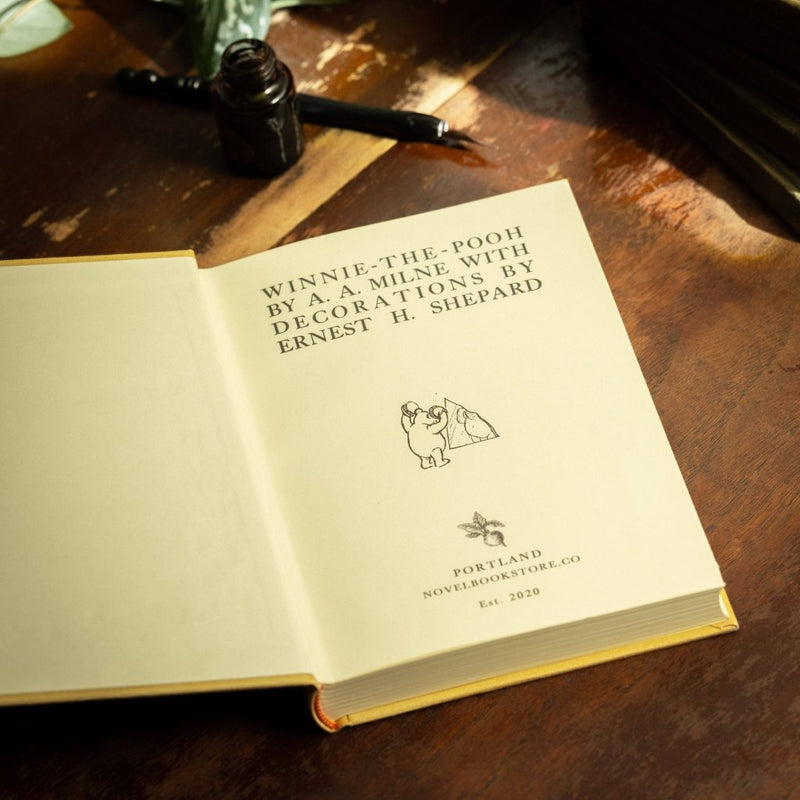 WINNIE-THE-POOH
BY A. A. MILNE WITH
DECORATIONS BY
ERNEST H. SHEPARD
PORTLAND
NOVELBOOKSTORE.CO
Est. 2020